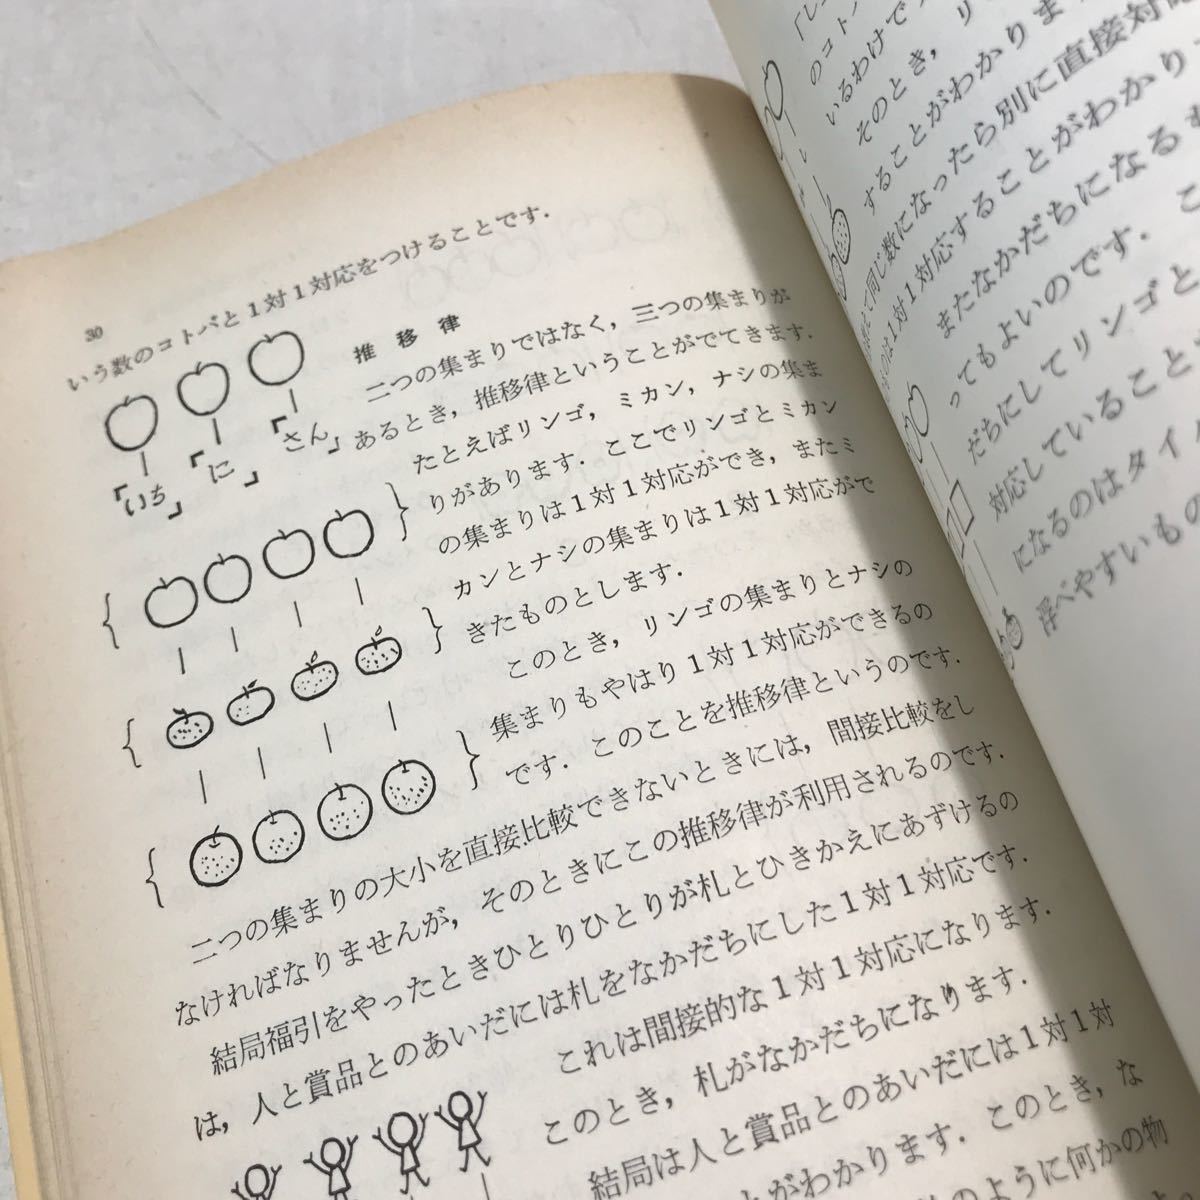 30
いう数のコトバと1対1対応をつけることです．
「いち」
「に」
「さん」
推移律
二つの集まりではなく，三つの集まりが
あるとき，推移律ということがでてきます．
たとえばリンゴ，ミカン，ナシの集ま
りがあります．ここでリンゴとミカン
の集まりは1対1対応ができ，またミ
カンとナシの集まりは1対1対応がで
きたものとします．
このとき，リンゴの集まりとナシの
集まりもやはり1対1対応ができるの
です．このことを推移律というのです．
二つの集まりの大小を直接比較できないときには，間接比較をし
なければなりませんが，そのときにこの推移律が利用されるのです．
結局福引をやったときひとりひとりが札とひきかえにあずけるの
は，人と賞品とのあいだには札をなかだちにした1対1対応です．
これは間接的な1対1対応になります．
このとき，札がなかだちになります．
結局は人と賞品とのあいだには1対1対
とがわかります．このとき，な
のように何かの物
のコトバ
いるわけで
そのとき，リ
することがわかりま
て同じ数になったら別に直接対応
のは1対1対応することがわかり
またなかだちになるも
ってもよいのです．こ
だちにしてリンゴと
対応していること
になるのはタイル
浮べやすいもの